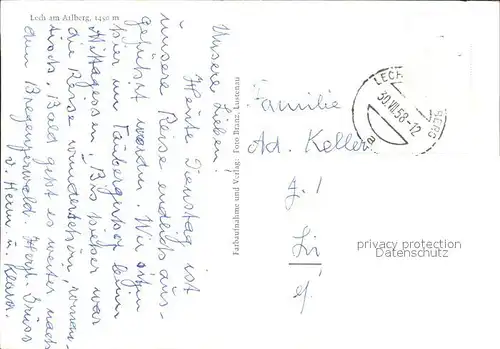 Lech am Arlberg, 1450 m
Unsere Lieben!
Heute Dienstag ist
unsere Reise endlich aus-
geführt worden. Wir sitzen
hier im Taubergunser beim
Mittagessen. Bis hieher war
die Reise wunderschön, roman-
tisch. Bald geht es weiter nach
dem Bregenzerwald. Herzl. Grüss
v. Herm. u. Klara.
Farbaufnahme und Verlag: Foto Bunz, Lustenau
Familie
Ad. Keller
LECH
30.VII.58-12
privacy protection
Datenschutz